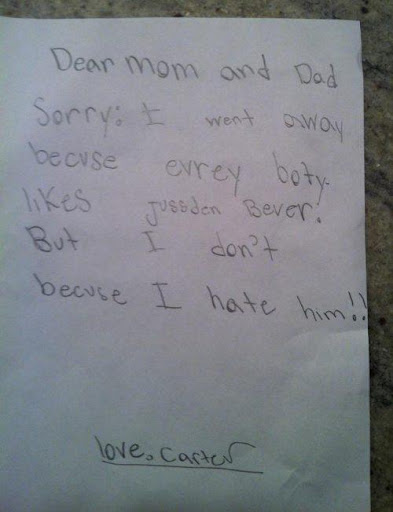 Dear mom and Dad
Sorry: I went away
becuse evrey boty
likes jussden Bever!
But I don't
becuse I hate him!!
love. Carter